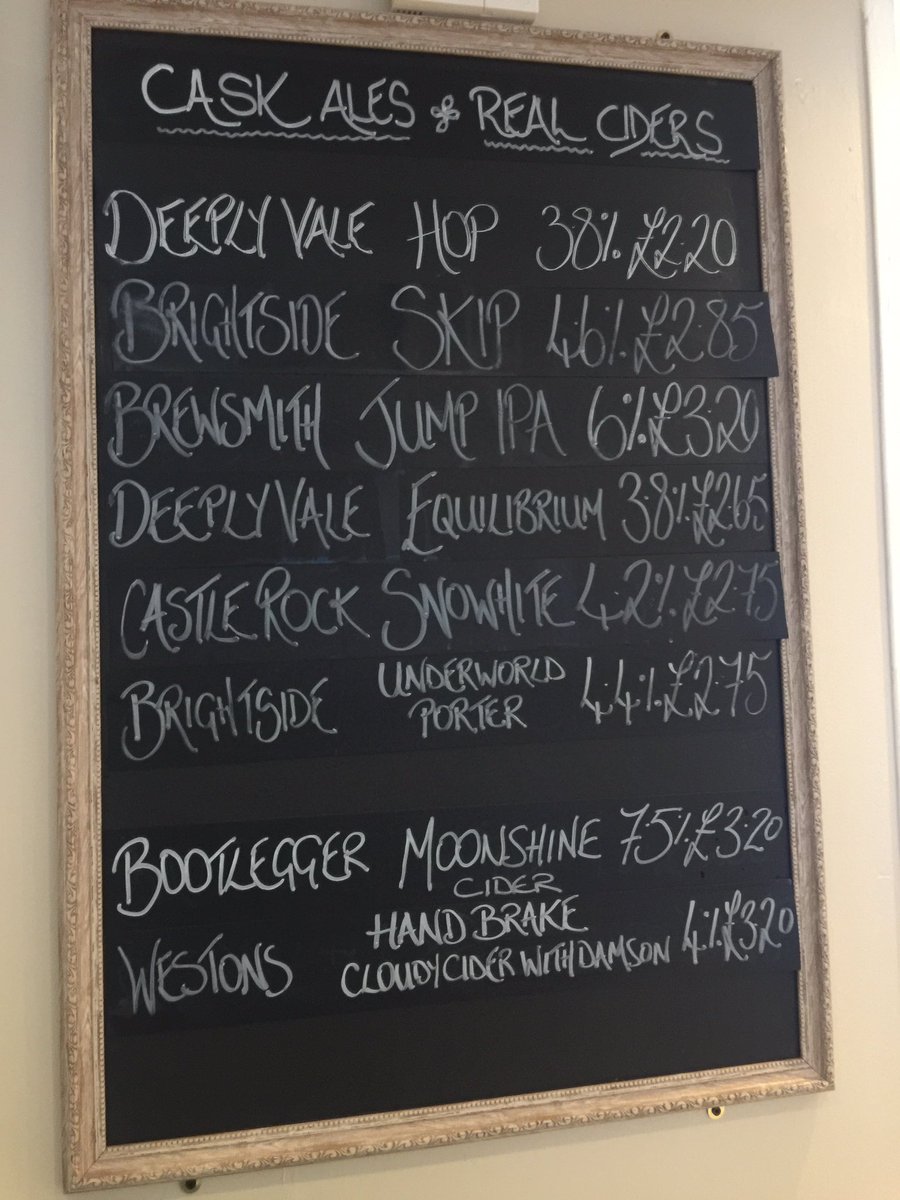 CASK ALES & REAL CIDERS
DEEPLY VALE HOP 3.8% £2.20
BRIGHTSIDE SKIP 4.6% £2.85
BREWSMITH JUMP IPA 6% £3.20
DEEPLY VALE EQUILIBRIUM 3.8% £2.65
CASTLE ROCK SNOWHITE 4.2% £2.75
BRIGHTSIDE UNDERWORLD PORTER 4.4% £2.75
BOOTLEGGER MOONSHINE CIDER 7.5% £3.20
WESTONS HAND BRAKE CLOUDY CIDER WITH DAMSON 4% £3.20